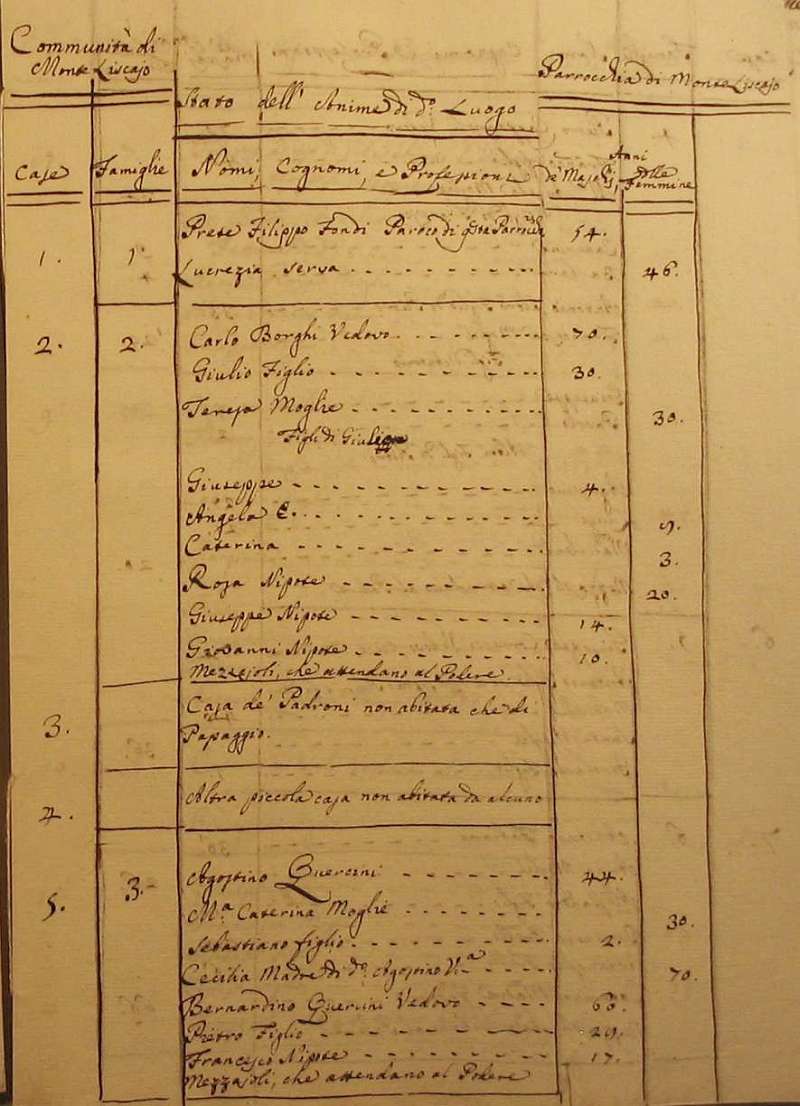 Communità di
Monte Liscajo
Parrocchia di Monte Liscajo
Stato dell' Anime di do. Luogo
Case Famiglie Nomi, Cognomi, e Professioni Anni de' Maschi, delle Femmine
1. 1. Prete Filippo Fondi Paroco di qsta Parrocch.a 54.
Lucrezia serva 46.
2. 2. Carlo Borghi Vedovo 70.
Giulio Figlio 30.
Teresa Moglie 30.
Figli di Giulio
Giuseppe 4.
Angela 9.
Caterina 3.
Rosa Nipote 20.
Giuseppe Nipote 14.
Giovanni Nipote 10.
Mezzajoli, che attendano al Podere
3. Casa de' Padroni non abitata che di
Passaggio.
4. Altra piccola casa non abitata da alcuno
5. 3. Agostino Quercini 44.
M.a Caterina Moglie 30.
Sebastiano figlio 2.
Cecilia Madre di do. Agostino V.a 70.
Bernardino Quercini Vedovo 66.
Pietro Figlio 29.
Francesco Nipote 17.
Mezzajoli, che attendano al Podere